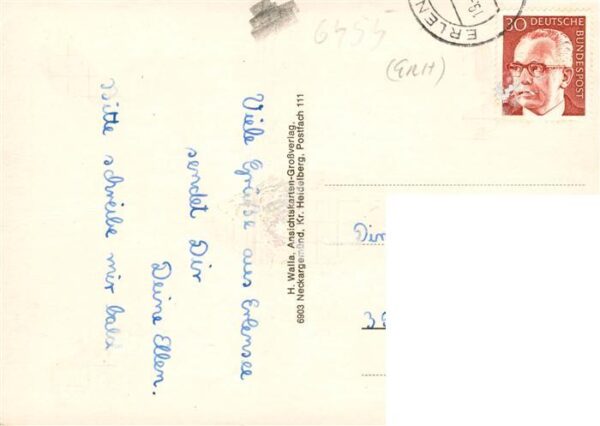 Viele Grüße aus Erlensee
sendet Dir
Deine Ellen.
Bitte schreibe mir bald
H. Walla, Ansichtskarten-Großverlag,
6903 Neckargemünd, Kr. Heidelberg, Postfach 111
6454
(ERH)
ERLEN
19
30 DEUTSCHE
BUNDESPOST
Din